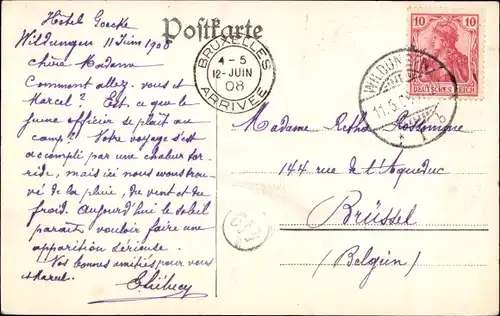 Postkarte
Hotel Goecke
Wildungen 11 Juin 1908
Chère Madame
Comment allez-vous et
Marcel? Est-ce que le
jeune officier se plaît au
camp? Notre voyage s'est
accompli par une chaleur tor-
ride, mais ici nous avons trou-
vé de la pluie, du vent et du
froid. Aujourd'hui le soleil
paraît vouloir faire une
apparition sérieuse.
Vos bonnes amitiés pour vous
et Marcel.
BRUXELLES
4-5
12-JUIN
08
ARRIVÉE
10 10
DEUTSCHES REICH
WILDUNGEN
11.6.
Madame Retha
144 rue de l'Aqueduc
Brüssel
(Belgien)